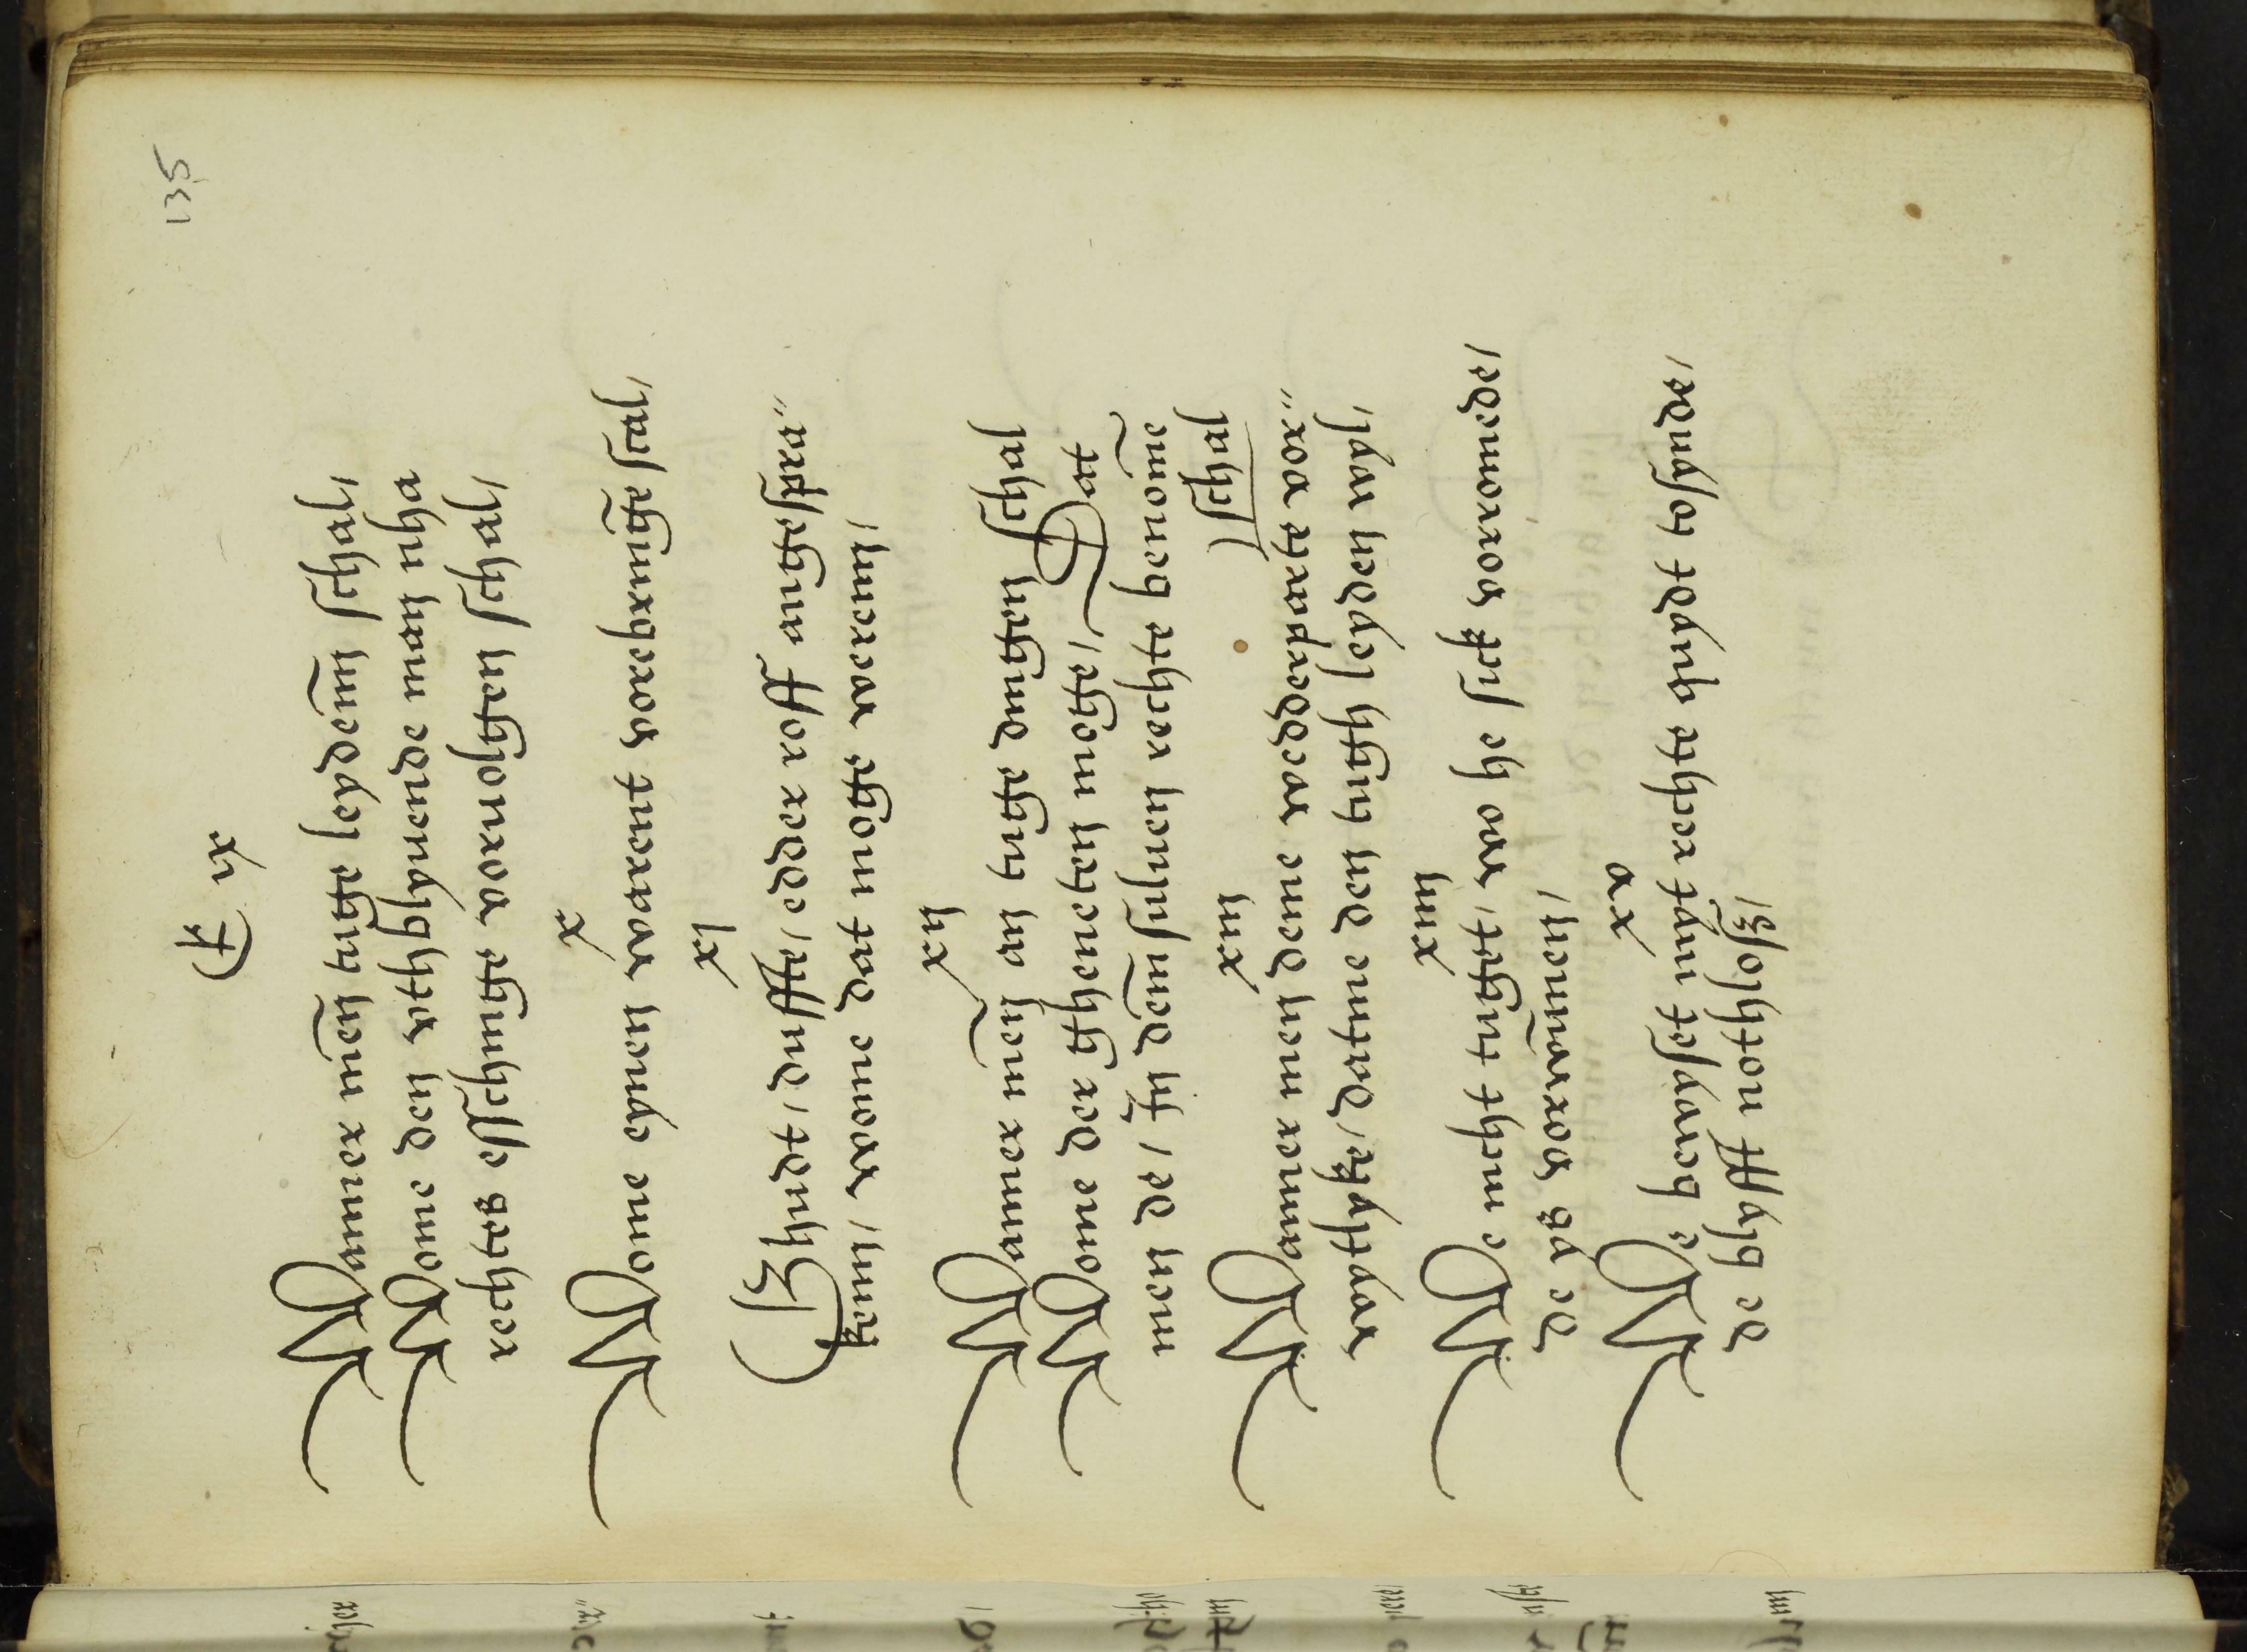 135
C ix
Wanner men̄ tuge leyden̄n schal,
Wome den vthblyuende man nha
rechtes esschinge voruolgen schal,
x
Wome eynen warent vorebringē scal,
xj
Ghudt, duffte, edder roff angespra"
kenn, wome dat moge werenn,
xij
Wanner men̄ an tuge dingen schal
Wome der gheneten moge, Dat
men de, In dem̄ suluen rechte benom̄e
schal
xiij
Wanner men deme wedderparte vor"
wytlyke, datme den tugh leyden wyl,
xiiij
We nicht tuget, wo he sick vorromede,
de ys vorwūnnen,
xv
We bewyset myt rechte quydt tosynde,
de blyfft nothlosß,